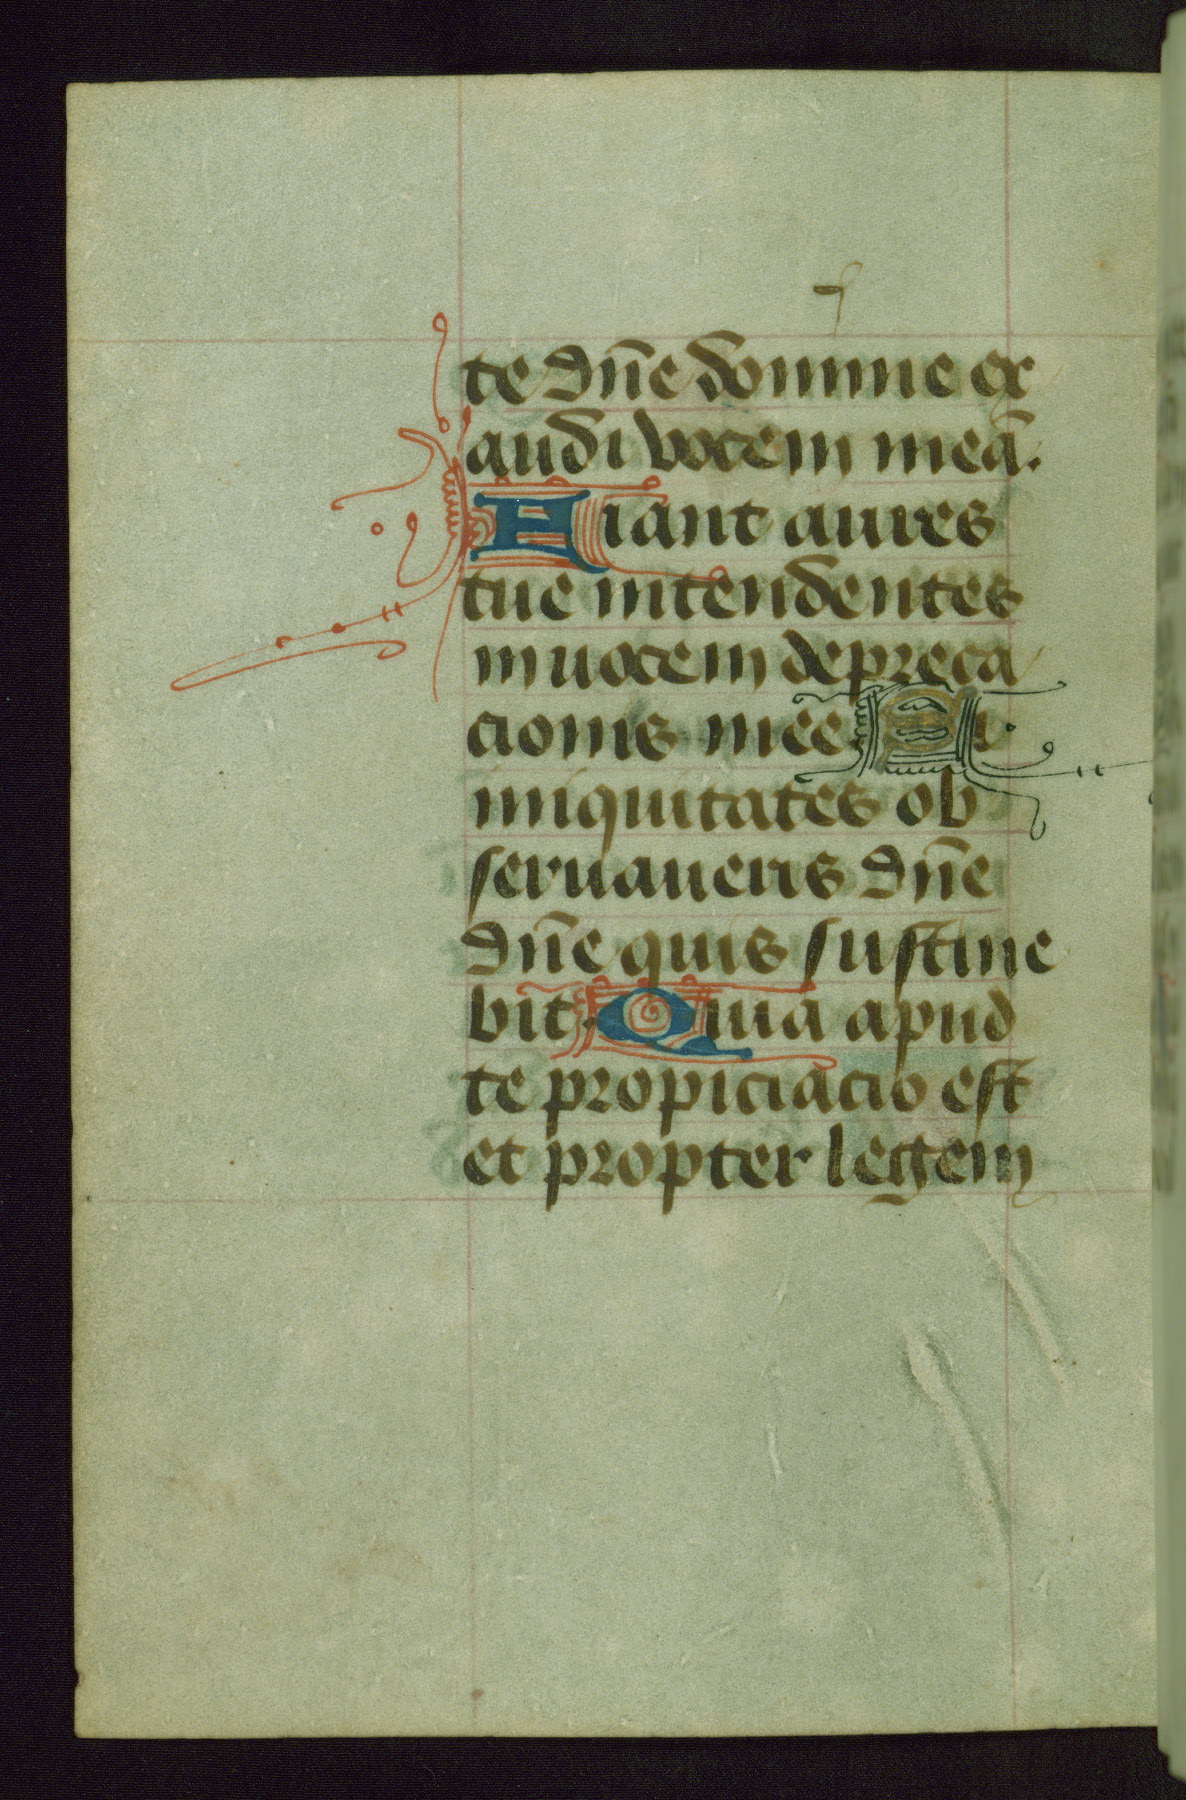 te dn̄e domine ex
audi vocem meā.
Fiant aures
tue intendentes
in uocem depreca
cionis mee Si
iniquitates ob
seruaueris dn̄e
dn̄e quis sustine
bit. Quia apud
te propiciacio est
et propter legem